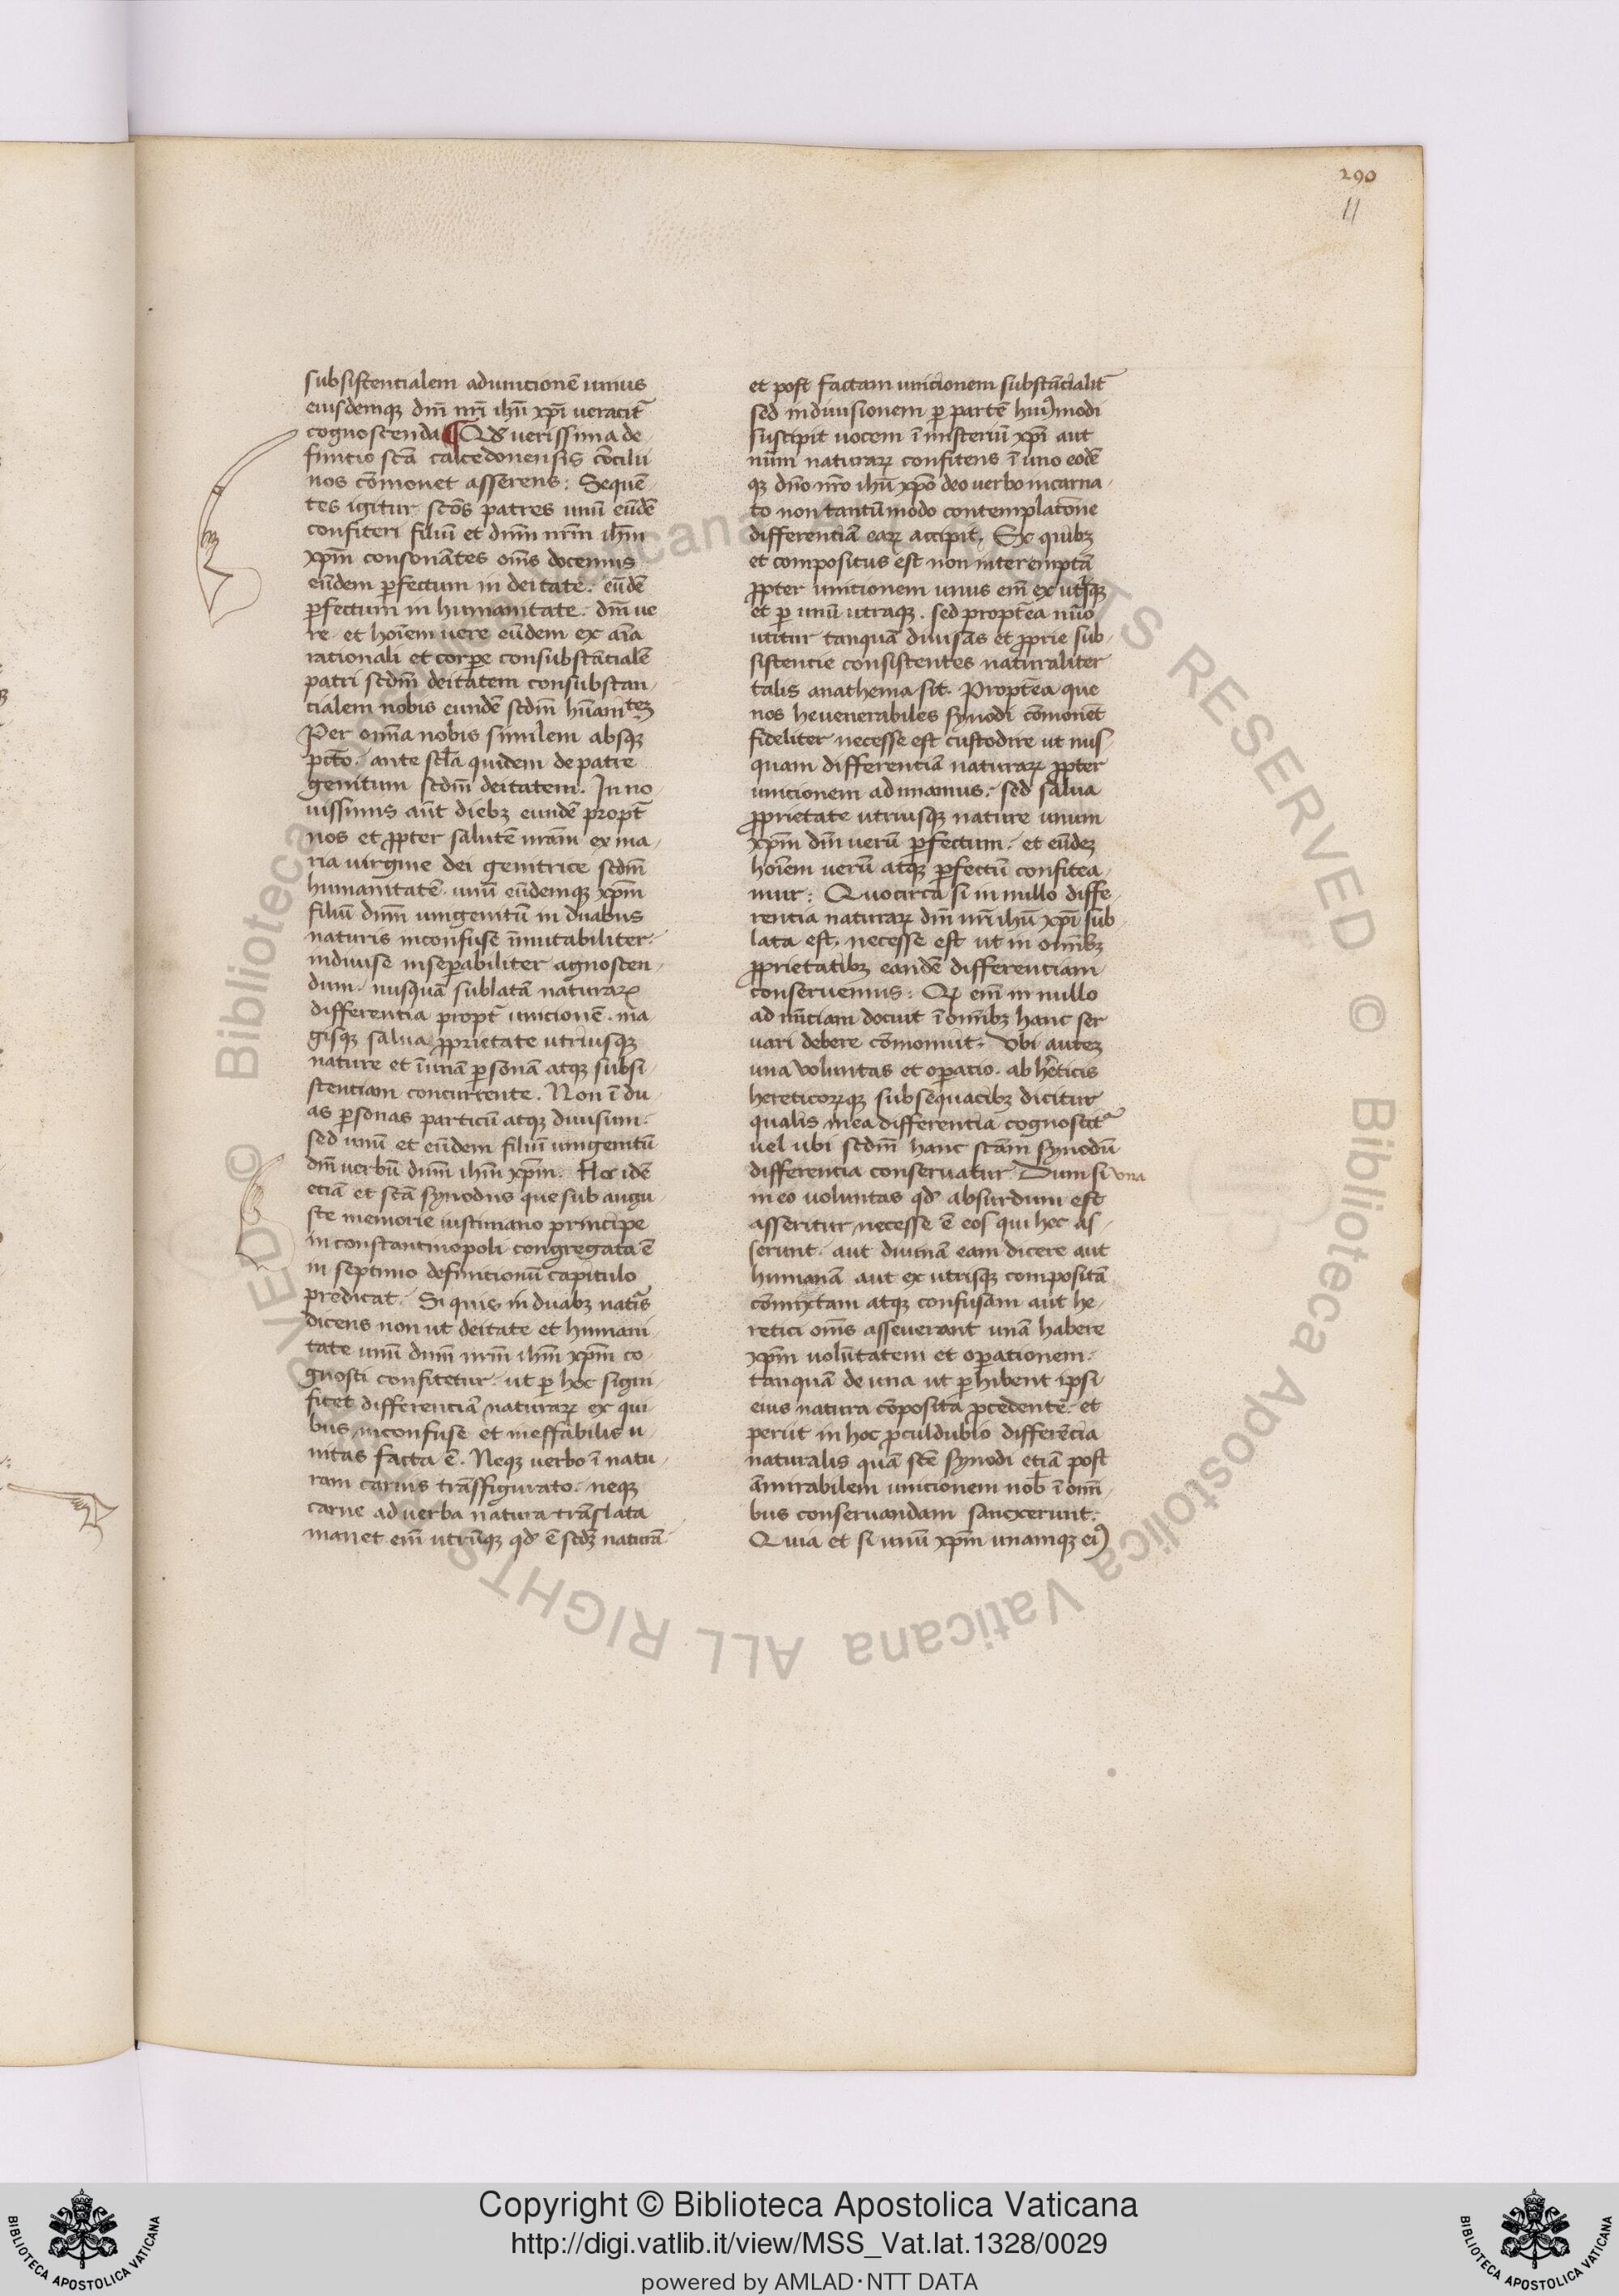 290
11
subsistencialem adunicionē unius
eiusdemqꝫ dn̄i nr̄i ihū xp̄i veracit̄
cognoscenda ¶ Qd' verissima de-
finitio scā calcedonensis cōcilii
nos cōmonet asserens: Sequē-
tes igitur scōs patres unū eūdē
confiteri filiū et dn̄m nr̄m ihm̄
xp̄m consonātes om̄s docemus
eūdem ꝑfectum in deitate. eūdē
ꝑfectum in humanitate. dm̄ ve-
re et hoīem vere eūdem ex aīa
racionali et corꝑe consubstācialē
patri scdm̄ deitatem consubstan-
cialem nobis eundē scdm̄ hūaniteꝫ
Per om̄a nobis similem absqꝫ
pctō. ante scl̄a quidem de patre
genitum scdm̄ deitatem. In no-
vissimis aūt diebꝫ eundē propt̄
nos et ꝓpter salutē nrām ex ma-
ria virgine dei genitrice scdm̄
humanitatē. unū eūdemqꝫ xp̄m
filiū dnm̄ unigenitū in duabus
naturis inconfuse īmutabiliter.
indivise insepabiliter agnoscen-
dum. nusquā sublatā naturaꝝ
differentia propt̄ unicionē. ma-
gisqꝫ salva ꝓprietate utriusqꝫ
nature et ī unā ꝑsonā atqꝫ subsi-
stenciam concurrente. Non ī du-
as ꝑsonas particū atqꝫ divisum.
sed unū et eūdem filiū unigenitū
dm̄ verbū dnm̄ ihm̄ xp̄m. Hec idē
etiā et scā synodus que sub augu-
ste memorie iustiniano principe
in constantinopoli congregata ē
in septimo definitionū capitulo
predicat. Si quis in duabꝫ nat̄is
dicens non ut deitate et humani-
tate unū dnm̄ nr̄m ihm̄ xp̄m co-
gnosci confitetur. ut ꝑ hoc signi-
ficet differenciā naturaꝝ ex qui
bus inconfuse et ineffabilis u-
nitas facta ē. Neqꝫ verbo ī natu-
ram carnis trāsfigurato. neqꝫ
carne ad verba natura trāslata
manet em̄ utrūqꝫ qd' ē scdꝫ naturā
et post factam unicionem substācialit̄
sed in divisionem ꝑ partē huiꝰmodi
suscipit vocem ī misteriū xp̄i aut
nūm naturaꝝ confitens ī uno eodē
qꝫ dn̄o nr̄o ihū xp̄o deo verbo incarna-
to non tantūmodo contemplatōne
differentiā eaꝝ accipit. Ex quibꝫ
et compositus est non interemptā
ꝓpter unicionem unus em̄ ex utrisqꝫ
et ꝑ unū utraqꝫ. sed proptēa nūo
utitur tanquā divisās et ꝓprie sub-
sistencie consistentes naturaliter
talis anathema sit. Proptēa que
nos he venerabiles synodi cōmonēt
fideliter necesse est custodire ut nus-
quam differentiā naturaꝝ ꝓpter
unicionem adimamus. sed salva
ꝓprietate utriusqꝫ nature unum
xp̄m dm̄ verū ꝑfectum. et eūdeꝫ
hoīem verū atqꝫ ꝑfectū confitea-
mur: Quocirca si in nullo diffe-
rentia naturaꝝ dn̄i nr̄i ihū xp̄i sub-
lata est. necesse est ut in om̄ibꝫ
ꝓprietatibꝫ eandē differentiam
conservemus: Qꝫ em̄ in nullo
ad nūciam docuit ī om̄ibꝫ hanc ser
vari debere cōmonuit. Ubi auteꝫ
una voluntas et oꝑatio. ab hēticis
hereticoꝝqꝫ subsequacibꝫ dicitur
qualis in ea differentia cognoscit̄
vel ubi scdm̄ hanc scām synodū
differentia conservatur. Dum si una
in eo voluntas qd' absurdum est
asseritur necesse ē eos qui hec as-
serunt. aut divinā eam dicere aut
humanā aut ex utrisqꝫ compositā
cōmixtam atqꝫ confusam aut he-
retici om̄s asseverant unā habere
xp̄m volūtatem et oꝑationem.
tanquā de una ut ꝑhibent ipsi
eius natura cōposita ꝓcedentē. et
periit in hoc ꝓculdubio differēcia
naturalis quā scē synodi etiā post
āmirabilem unicionem nob̄ ī om̄i-
bus conservandam sanxerunt.
Quia et si unū xp̄m unamqꝫ eiꝰ
Copyright © Biblioteca Apostolica Vaticana
http://digi.vatlib.it/view/MSS_Vat.lat.1328/0029
powered by AMLAD·NTT DATA
BIBLIOTECA APOSTOLICA VATICANA
BIBLIOTECA APOSTOLICA VATICANA